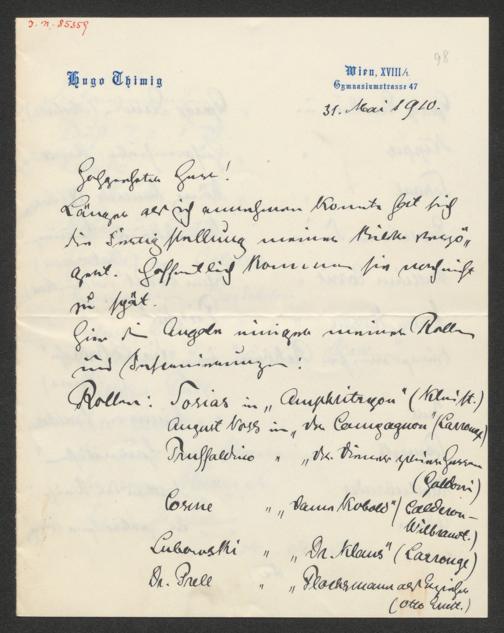 J.N. 85359
98
Hugo Thimig
Wien, XVIII/1.
Gymnasiumstrasse 47
31. Mai 1910.
Hochgeehrter Herr!
Länger als ich annehmen konnte hat sich
die Fertigstellung meiner Bilder verzö-
gert. Hoffentlich kommen sie noch nicht
zu spät.
Hier die Angabe einiger meiner Rollen
und Inszenierungen:
Rollen: Sosias in „Amphitryon" (Kleist.)
August Voss in „Der Compagnon" (Larronge)
Truffaldino „ „Der Diener zweier Herren
(Goldoni)
Cosme „ „Dame Kobold" (Calderon-
Wilbrandt.)
Lubowski „ „Dr. Klaus" (Larronge)
Dr. Prell „ „Flachsmann als Erzieher
(Otto Ernst.)